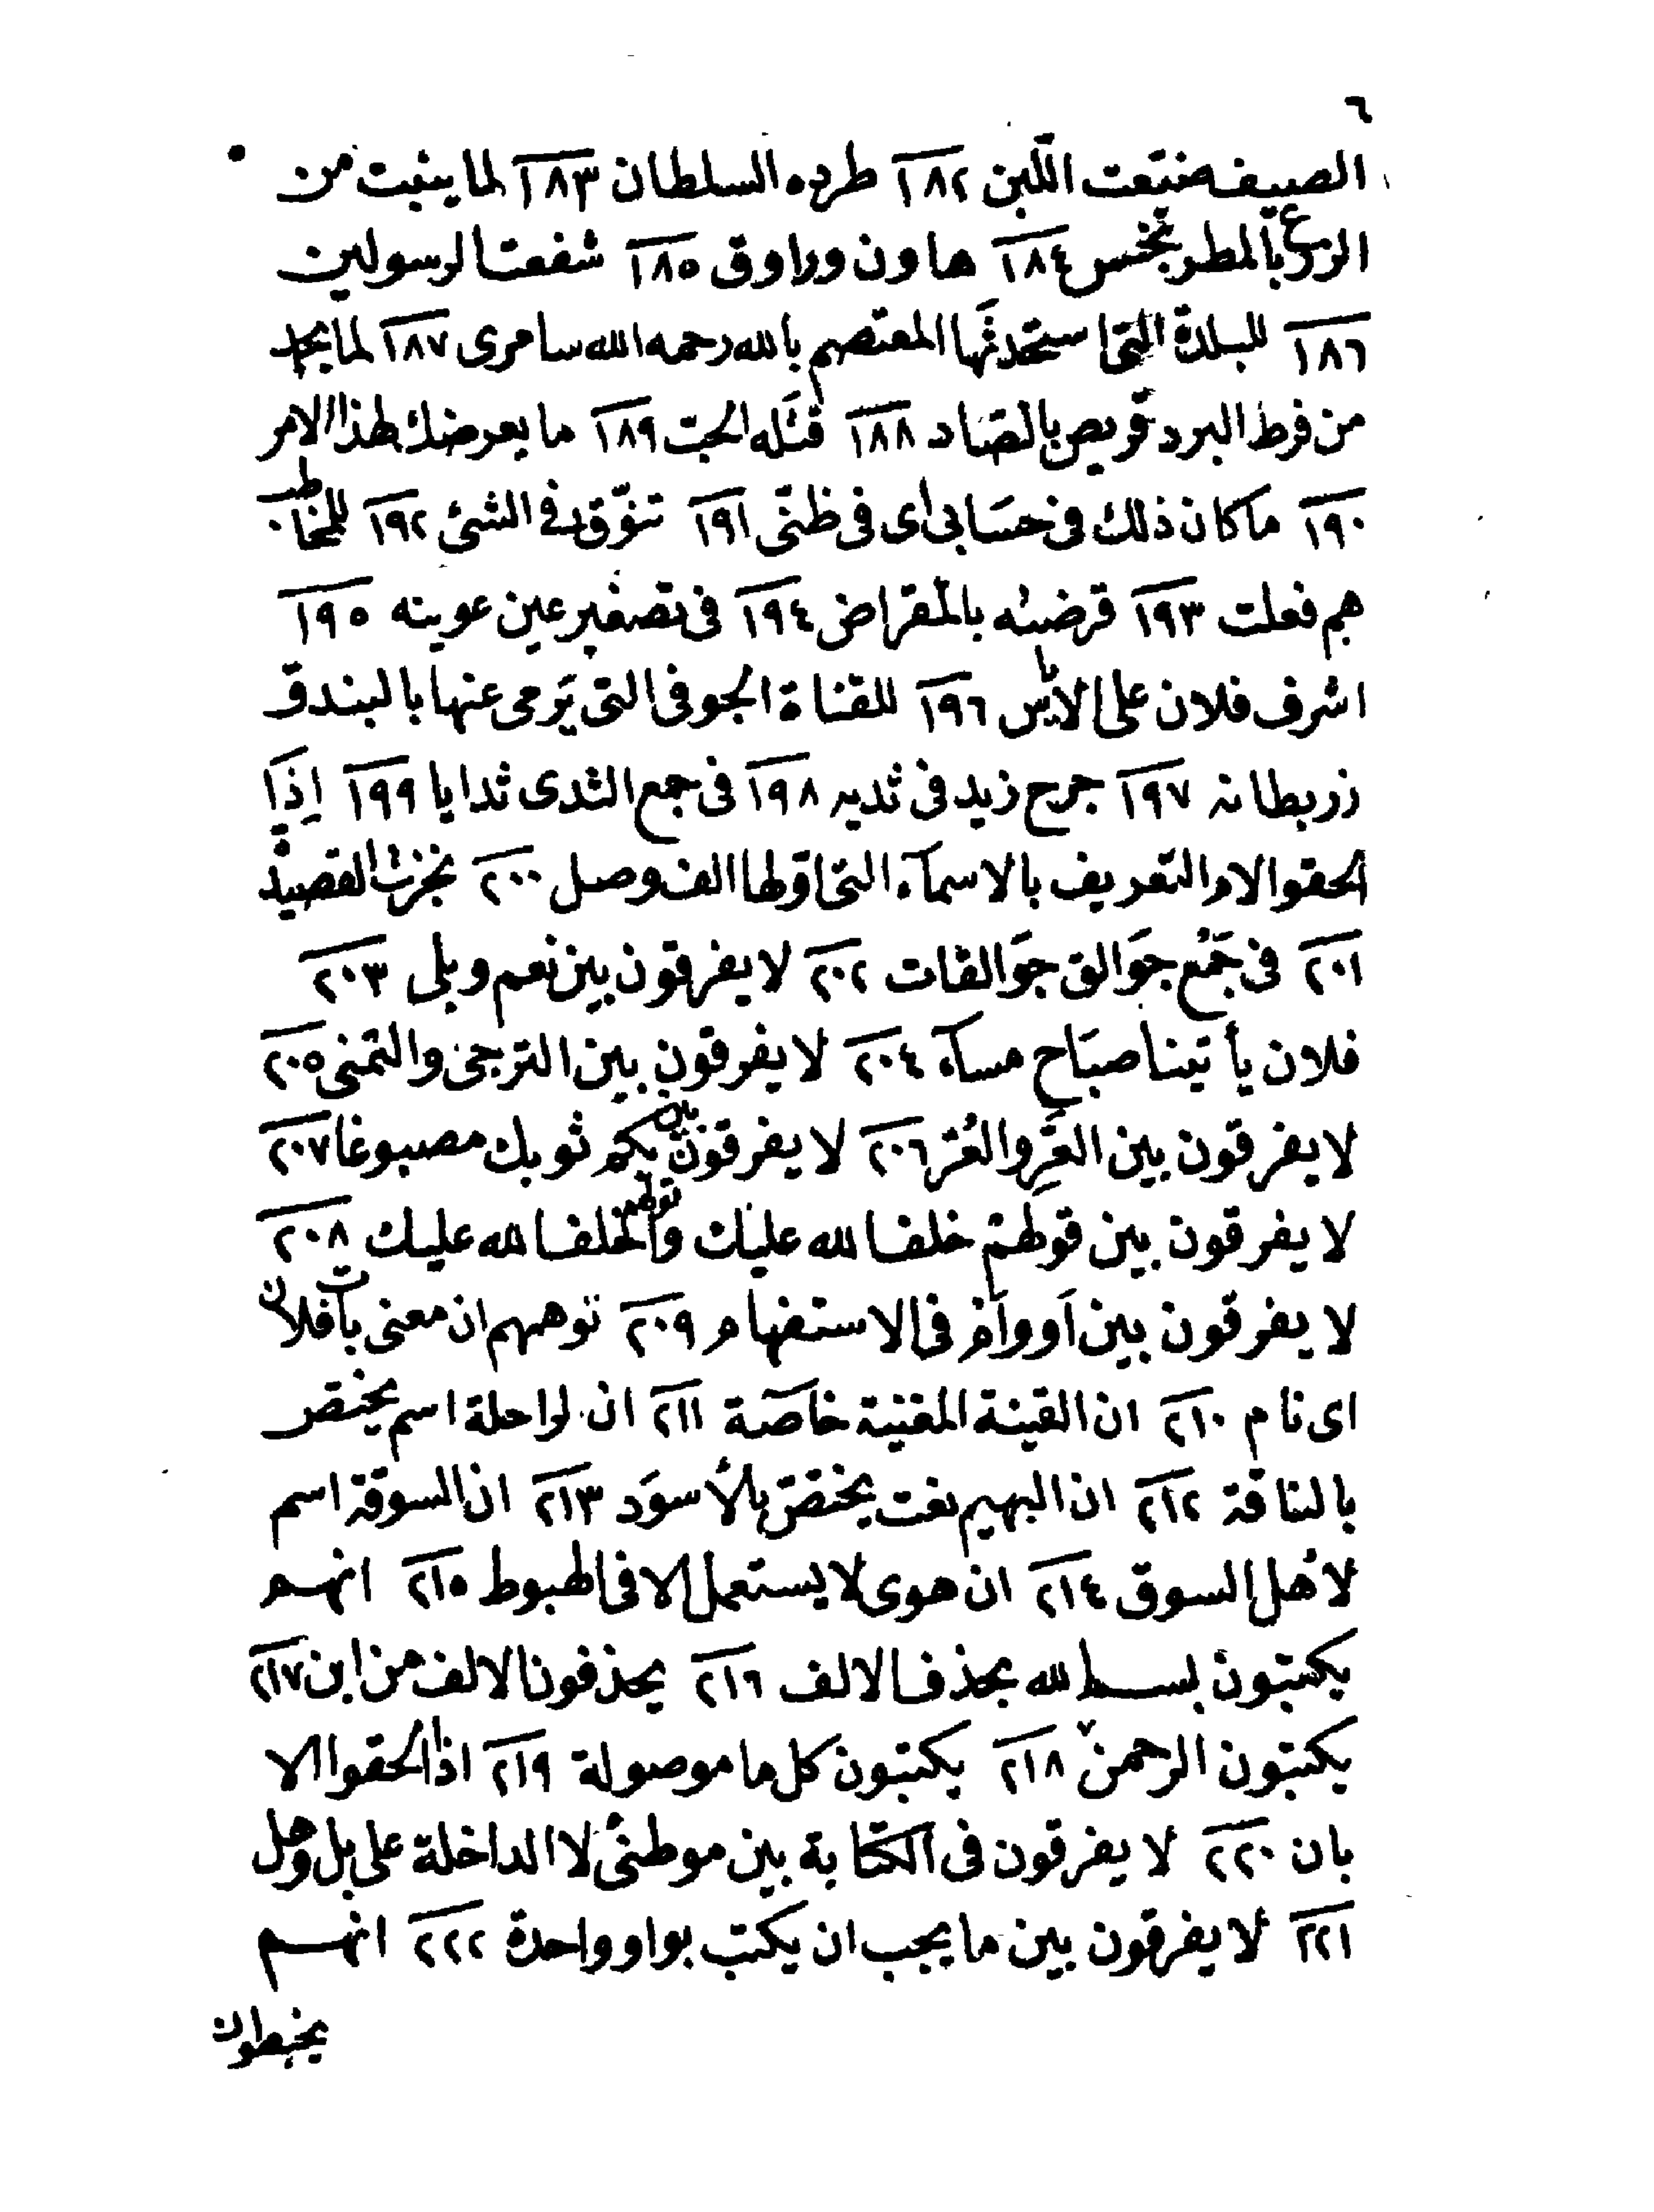 ٦
الصيف ضيّعت اللّبن ١٨٢ طرده السلطان ١٨٣ لما ينبت من
الزرع بالمطر بخس ١٨٤ هاون وراوق ١٨٥ شفعت الرسولين
١٨٦ للبلدة التى استحدثها المعتصم بالله رحمه الله سامرى ١٨٧ لما يجد
من فرط البرد قريص بالصاد ١٨٨ قتله الحبّ ١٨٩ ما يعرضك لهذا الامر
١٩٠ ما كان ذلك فى حسابى اى فى ظنّى ١٩١ تنوّق فى الشئ ١٩٢ للمخاطب
هم فعلت ١٩٣ قرضته بالمقراض ١٩٤ فى تصغير عين عوينه ١٩٥
اشرف فلان على الاياس ١٩٦ للقناة الجوفى التى يَرمى عنها بالبندق
زربطانه ١٩٧ جرح زيد فى ثديه ١٩٨ فى جمع الثدى ثدايا ١٩٩ اِذَا
الحقوا لام التعريف بالاسمآء التى اوّلها الف وصل ٢٠٠ نجزت القصيدة
٢٠١ فى جَمْع جَوَالق جَوَالقات ٢٠٢ لا يفرقون بين نعم وبلى ٢٠٣
فلان يأتينا صبَاح مسآء ٢٠٤ لا يفرقون بين الترجى والتمنى ٢٠٥
لا يفرقون بين العَرِّ والعُرّ ٢٠٦ لا يفرقون بين بكم ثوبك مصبوغا ٢٠٧
لا يفرقون بين قولهم خلف الله عليك وقولهم اخلف الله عليك ٢٠٨
لا يفرقون بين اَو واَم فى الاستفهام ٢٠٩ توهمهم ان معنى بات فلان
اى نام ٢١٠ ان القينة المغنية خاصّة ٢١١ ان الراحلة اسم يختص
بالناقة ٢١٢ ان البهيم نعت يختصّ بالأسوَد ٢١٣ ان السوقة اسم
لاهل السوق ٢١٤ ان هوى لا يستعمل الا فى الهبوط ٢١٥ انهم
يكتبون بسم الله بحذف الالف ٢١٦ يحذفون الالف من ابن ٢١٧
يكتبون الرحمن ٢١٨ يكتبون كل ما موصولة ٢١٩ اذا الحقوا لا
بان ٢٢٠ لا يفرقون فى الكتابة بين موطنى لا الداخلة على بل وهل
٢٢١ لا يفرقون بين ما يجب ان يكتب بواو واحدة ٢٢٢ انهم
يخبطون